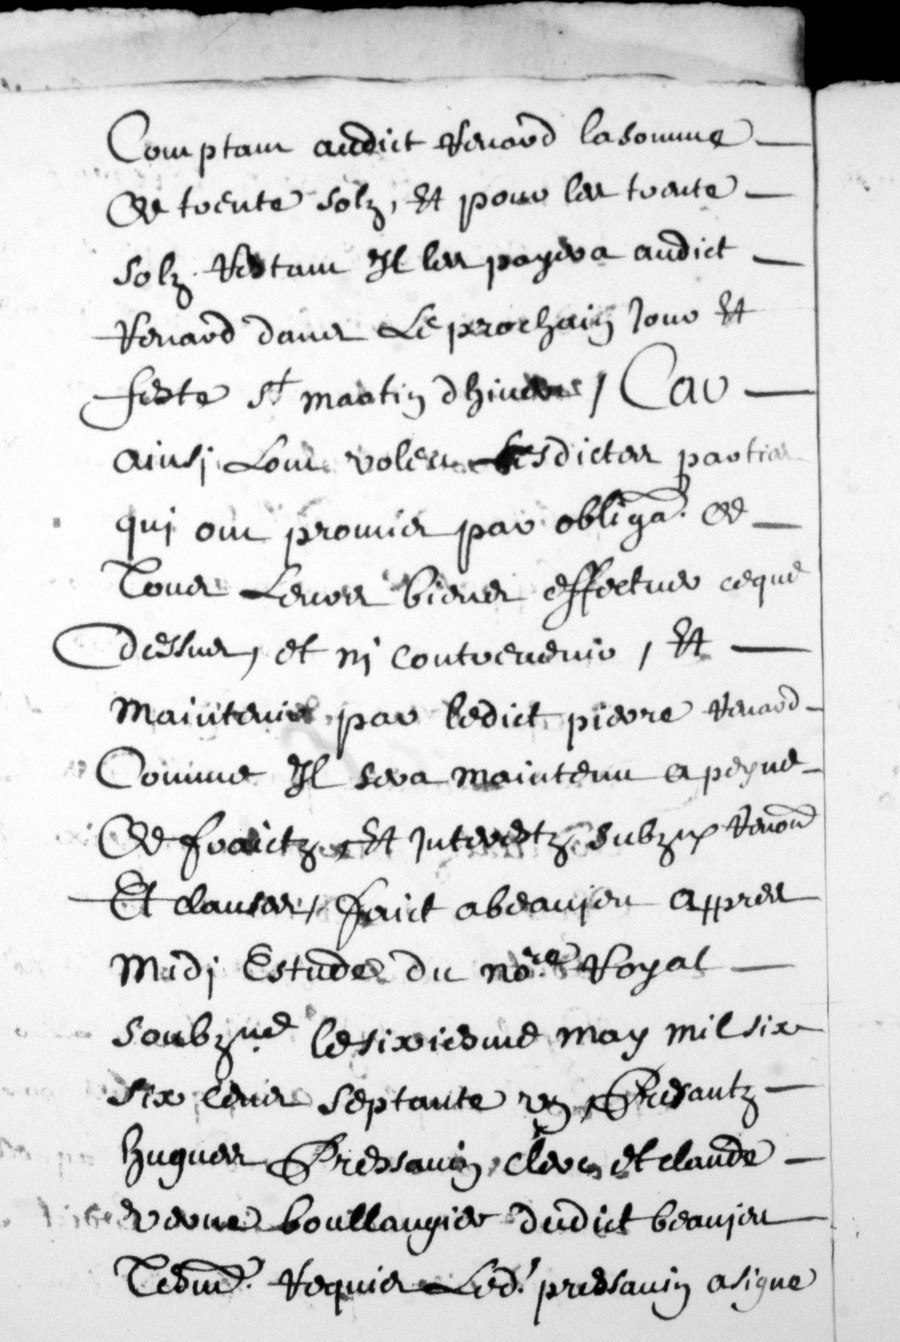 Comptant audict Renard la somme
de trente solz, Et pour les trente
solz Restant Il les payera audict
Renard dans Le prochain Jour Et
feste St martin dhiver / Car
ainsi Lont volem Lesdictes parties
qui ont promis par obliga. de
Tous Leurs biens effectuer ceque
dessus, et ni contrevenir, Et
maintenir par ledict pierre Renard
Comme Il sera maintenu a peyne
De fraictz Et Interestz subz
Et clauses / faict a beaujeu appres
Midj Estude du nore Royal
soubzne le sixiesme may mil six
six cens septante un, Presantz
hugues Pressavin, clerc, et claude
verne boullangier dudict beaujeu
Tesm. Requis Led. pressavin a signe